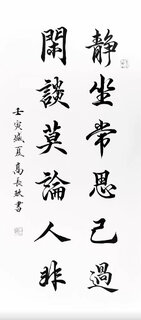 靜坐常思己過
閑談莫論人非
壬寅盛夏高長